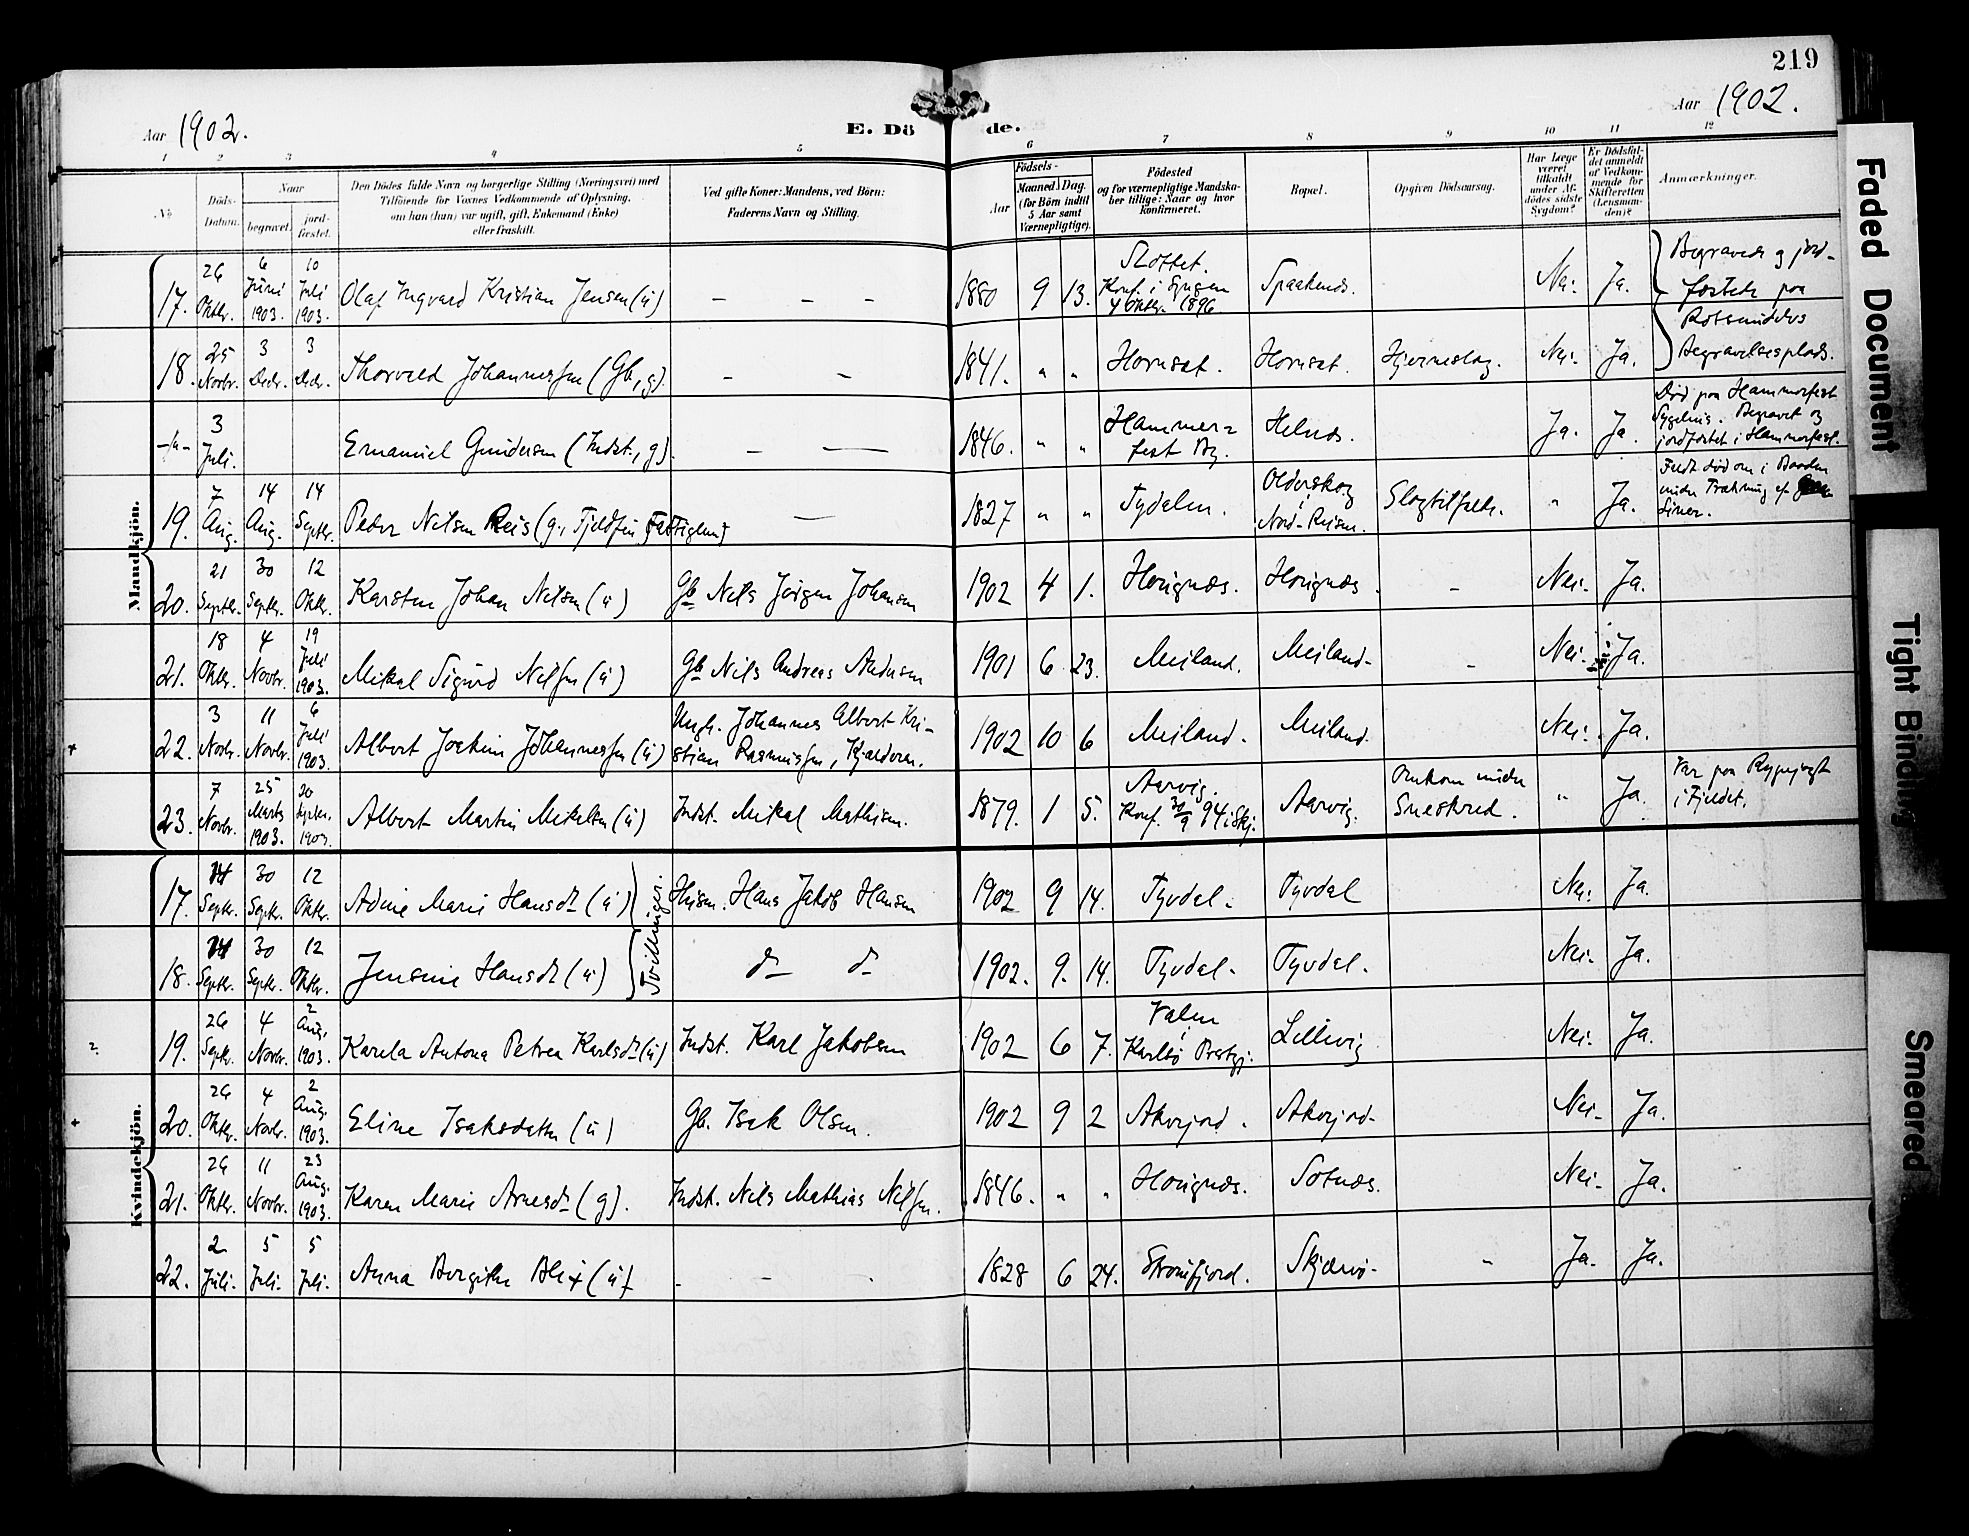 219
Aar 1902.
E. Dö de.
Aar 1902.
1 2 3 4 5 6 7 8 9 10 11 12
№
Døds-Datum.
Naar
begravet.
jord-fæstet.
Den Dödes fulde Navn og borgerlige Stilling (Næringsvei) med
Tilföiende for Voxnes Vedkommende af Oplysning,
om han (hun) var ugift, gift, Enkemand (Enke)
eller fraskilt.
Ved gifte Koner: Mandens, ved Börn:
Faderens Navn og Stilling.
Aar
Födsels-
Maaned. Dag.
(for Börn indtil
5 Aar samt
Værnepligtige).
Födested
og for værnepligtige Mandska-
ber tillige: Naar og hvor
konfirmeret.
Bopæl.
Opgiven Dödsaarsag.
Har Læge
været
tilkaldt
under Af-
dödes sidste
Sygdom?
Er Dödsfal-
det anmeldt
af Vedkom-
mende for
Skifteretten
(Lensman-
den)?
Anmærkninger.
Mandkjön.
17. 26 Oktbr. 6 Juni 1903. 10 Juli 1903. Olaf Ingvard Kristian Jensen (ú) – – – 1880 9 13. Slottet. Konf. i Lyngen 4 Oktbr. 1896 Spaaknæs. Nei. Ja. Begravede og jord-
fæstede paa
Rotsundelvs
Begravelsesplads.
18. 25 Novbr. 3 Decbr. 3 Decbr. Thorvald Johannessen (Gb., g). – – 1841. " " Hornsat. Hornsat. Hjerneslag. Nei. Ja.
3 Juli. Emanuel Gundersen (Indst., g). – — 1846. " " Hammer=
fest By. Helnæs. Ja. Ja. Død paa Hammerfest
Sygehus. Begravet og
jordfæstet i Hammerfest.
19. 7 Aug. 14 Aug. 14 Septbr. Peder Nilsen Reis (g., Fattiglem) — 1827 " " Tydalen. Olderskog
i
Nord-Reisen. Slagtilfælde. " Ja. Faldt død om i Baaden
under Trækning af
Liner.
20. 21 Septbr. 30 Septbr. 12 Oktbr. Karsten Johan Nilsen (ú) Gb. Nils Jörgen Johansen 1902 4 1. Havignæs. Havignæs. – Nei. Ja.
21. 18 Oktbr. 4 Novbr. 19 Juli 1903. Mikal Sigurd Nilsen (ú) Gb. Nils Andreas Andersen 1901 6 23. Meiland. Meiland. – Nei. Ja.
22. 3 Novbr. 11 Novbr. 6 Juli 1903. Albert Joakim Johannessen (ú) Ungk. Johannes Albert Kri-
stian Rasmussen, 1902 10 6 Meiland. Meiland. Nei. Ja.
23. 7 Novbr. 25 Marts 1903. 20 Septbr. 1903. Albert Martin Mikalsen (ú) Indst. Mikal Mathisen. 1879. 1 5. Aarvig.
Konf. 30/9 94 i Skj. Aarvig. Omkom under
Sneskred. " Ja. Var paa Rypejagt
i Fjeldet.
Kvindekjön.
17. 14 Septbr. 30 Septbr. 12 Oktbr. Adine Marie Hansdtr (ú) Husm. Hans Jakob Hansen 1902 9 14. Tyvdal. Tyvdal Nei. Ja.
Tvillinger.
18. 14 Septbr. 30 Septbr. 12 Oktbr. Jensine Hansdtr (ú) do do 1902. 9. 14. Tyvdal. Tyvdal. Nei. Ja.
19. 26 Septbr. 4 Novbr. 2 Aug. 1903. Karela Antona Petrea Karlsdtr (ú) Indst. Karl Jakobsen 1902 6 7. Valen
i
Karlsö Prestgj. Lillevig Nei. Ja.
20. 26 Oktbr. 4 Novbr. 2 Aug. 1903. Eline Isaksdatter (ú) Gb. Isak Olsen. 1902 9 2 Akorjord. Akorjord. Nei. Ja.
21. 26 Oktbr. 11 Novbr. 23 Aug. 1903. Karen Marie Arnesdtr (g). Indst. Nils Mathias Nilsen. 1846. " " Havignæs. Sotnæs. Nei. Ja.
22. 2 Juli. 5 Juli. 5 Juli. Anna Bergithe Blix (ú) – – 1828 6 24. Straumfjord. Skjærvö. " Ja. Ja.
Faded Document
Tight Binding
Smeared